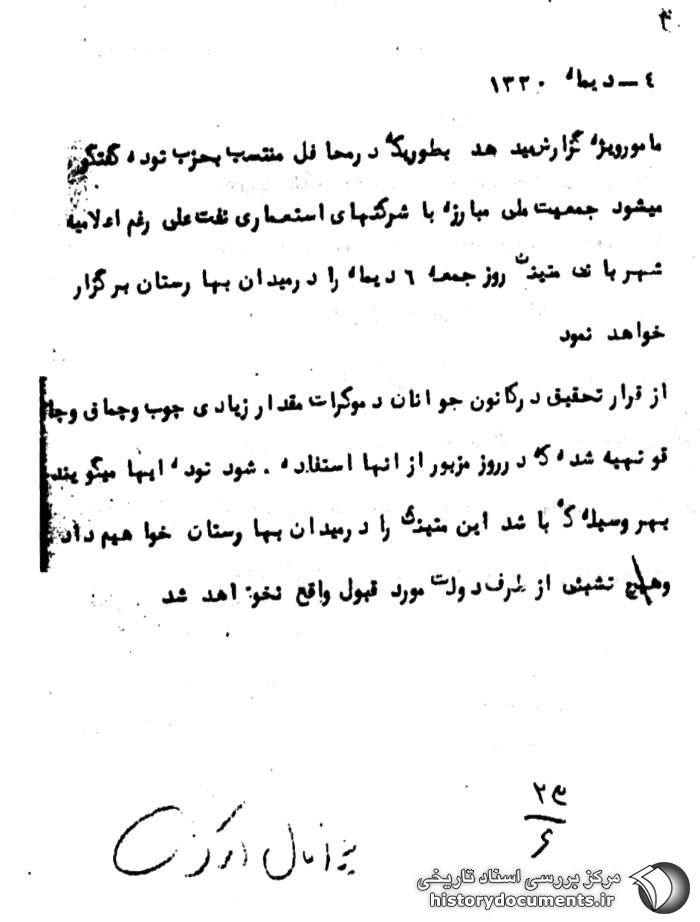 ۳
٤ ـ دیماه ۱۳۳۰
مامورویژه گزارش میدهد بطوریکه درمحافل منتسب بحزب توده گفتگو
میشود جمعیت ملی مبارزه با شرکتهای استعماری نفت علی رغم اعلامیه
شهربانی متینک روز جمعه ٦ دیماه را درمیدان بهارستان برگزار
خواهد نمود
از قرار تحقیق درکانون جوانان دموکرات مقدار زیادی چوب وچماق وچا
قو تهیه شده که درروز مزبور از انها استفاده . شود توده ایها میگویند
بهر وسیله که باشد این متینک را درمیدان بهارستان خواهیم داد
وهیچ تشبثی از طرف دولت مورد قبول واقع نخواهد شد
۲۳
۶
مرکز بررسی اسناد تاریخی
historydocuments.ir